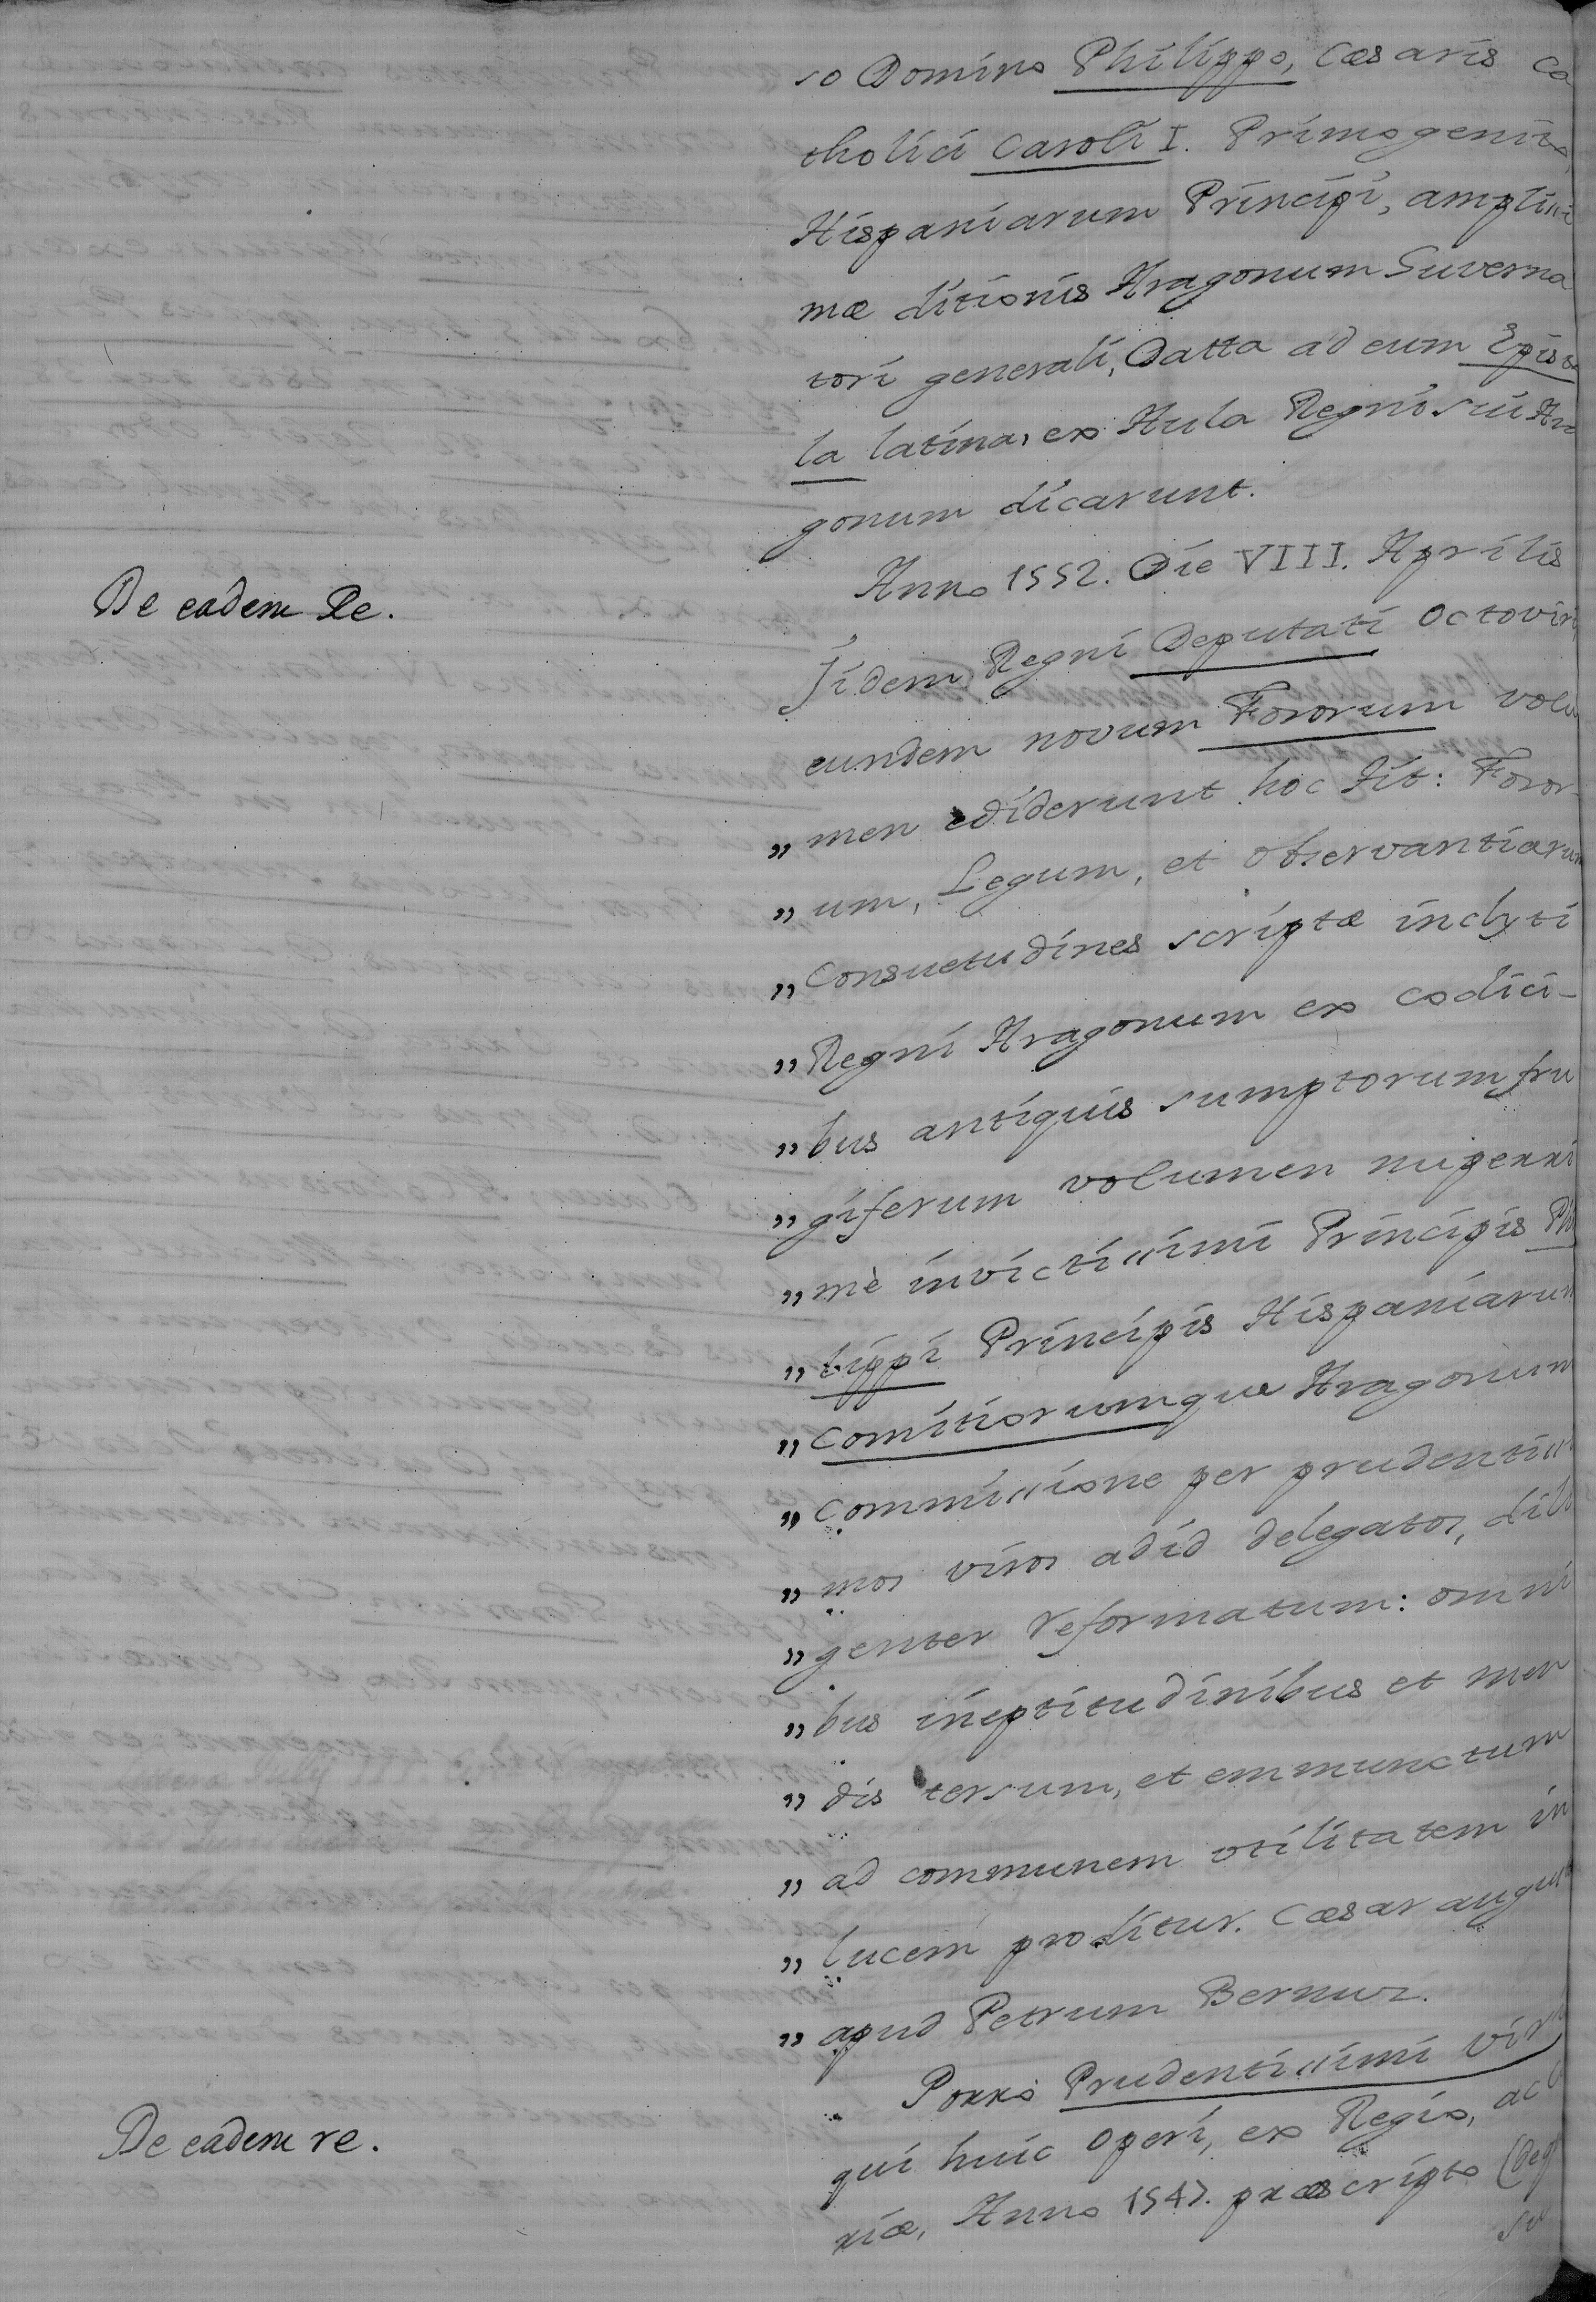 so Domino Philippo, Cæsaris ca
tholici Caroli I. Primogenito,
Hispaniarum Principi, amplissi
mæ ditionis Aragonum Guverna
tori generali, Datta ad eum Episto
la latina, ex Aula Regni sui Ara
gonum dicarunt.
Anno 1552. Die VIII. Aprilis
De eadem Re.
Jidem Regni Deputati Octoviri,
eundem novum Fororum volu
„ men ediderunt hoc tit: Foror-
„ um, Legum, et observantiarum
„ Consuetudines scriptæ inclyti
„ Regni Aragonum ex codici-
„ bus antiquis sumptorum fru
„ giferum volumen nuperri
„ mè invictissimi Principis Phi
„ lippi Principis Hispaniarum
„ Comitiorumque Aragonum
„ Commissione per prudentissi
„ mos viros ad id delegatos, dili
„ genter reformatum: omni
„ bus ineptitudinibus et men
„ dis tersum, et emmunctum
„ ad communem vtilitatem in
„ lucem proditur. Cæsar augus
„ apud Petrum Bernuz.
Porro Prudentissimi viri
qui huic Operi, ex Regio, ac
De eadem re.
riæ, Anno 1547. præscripto (Deg